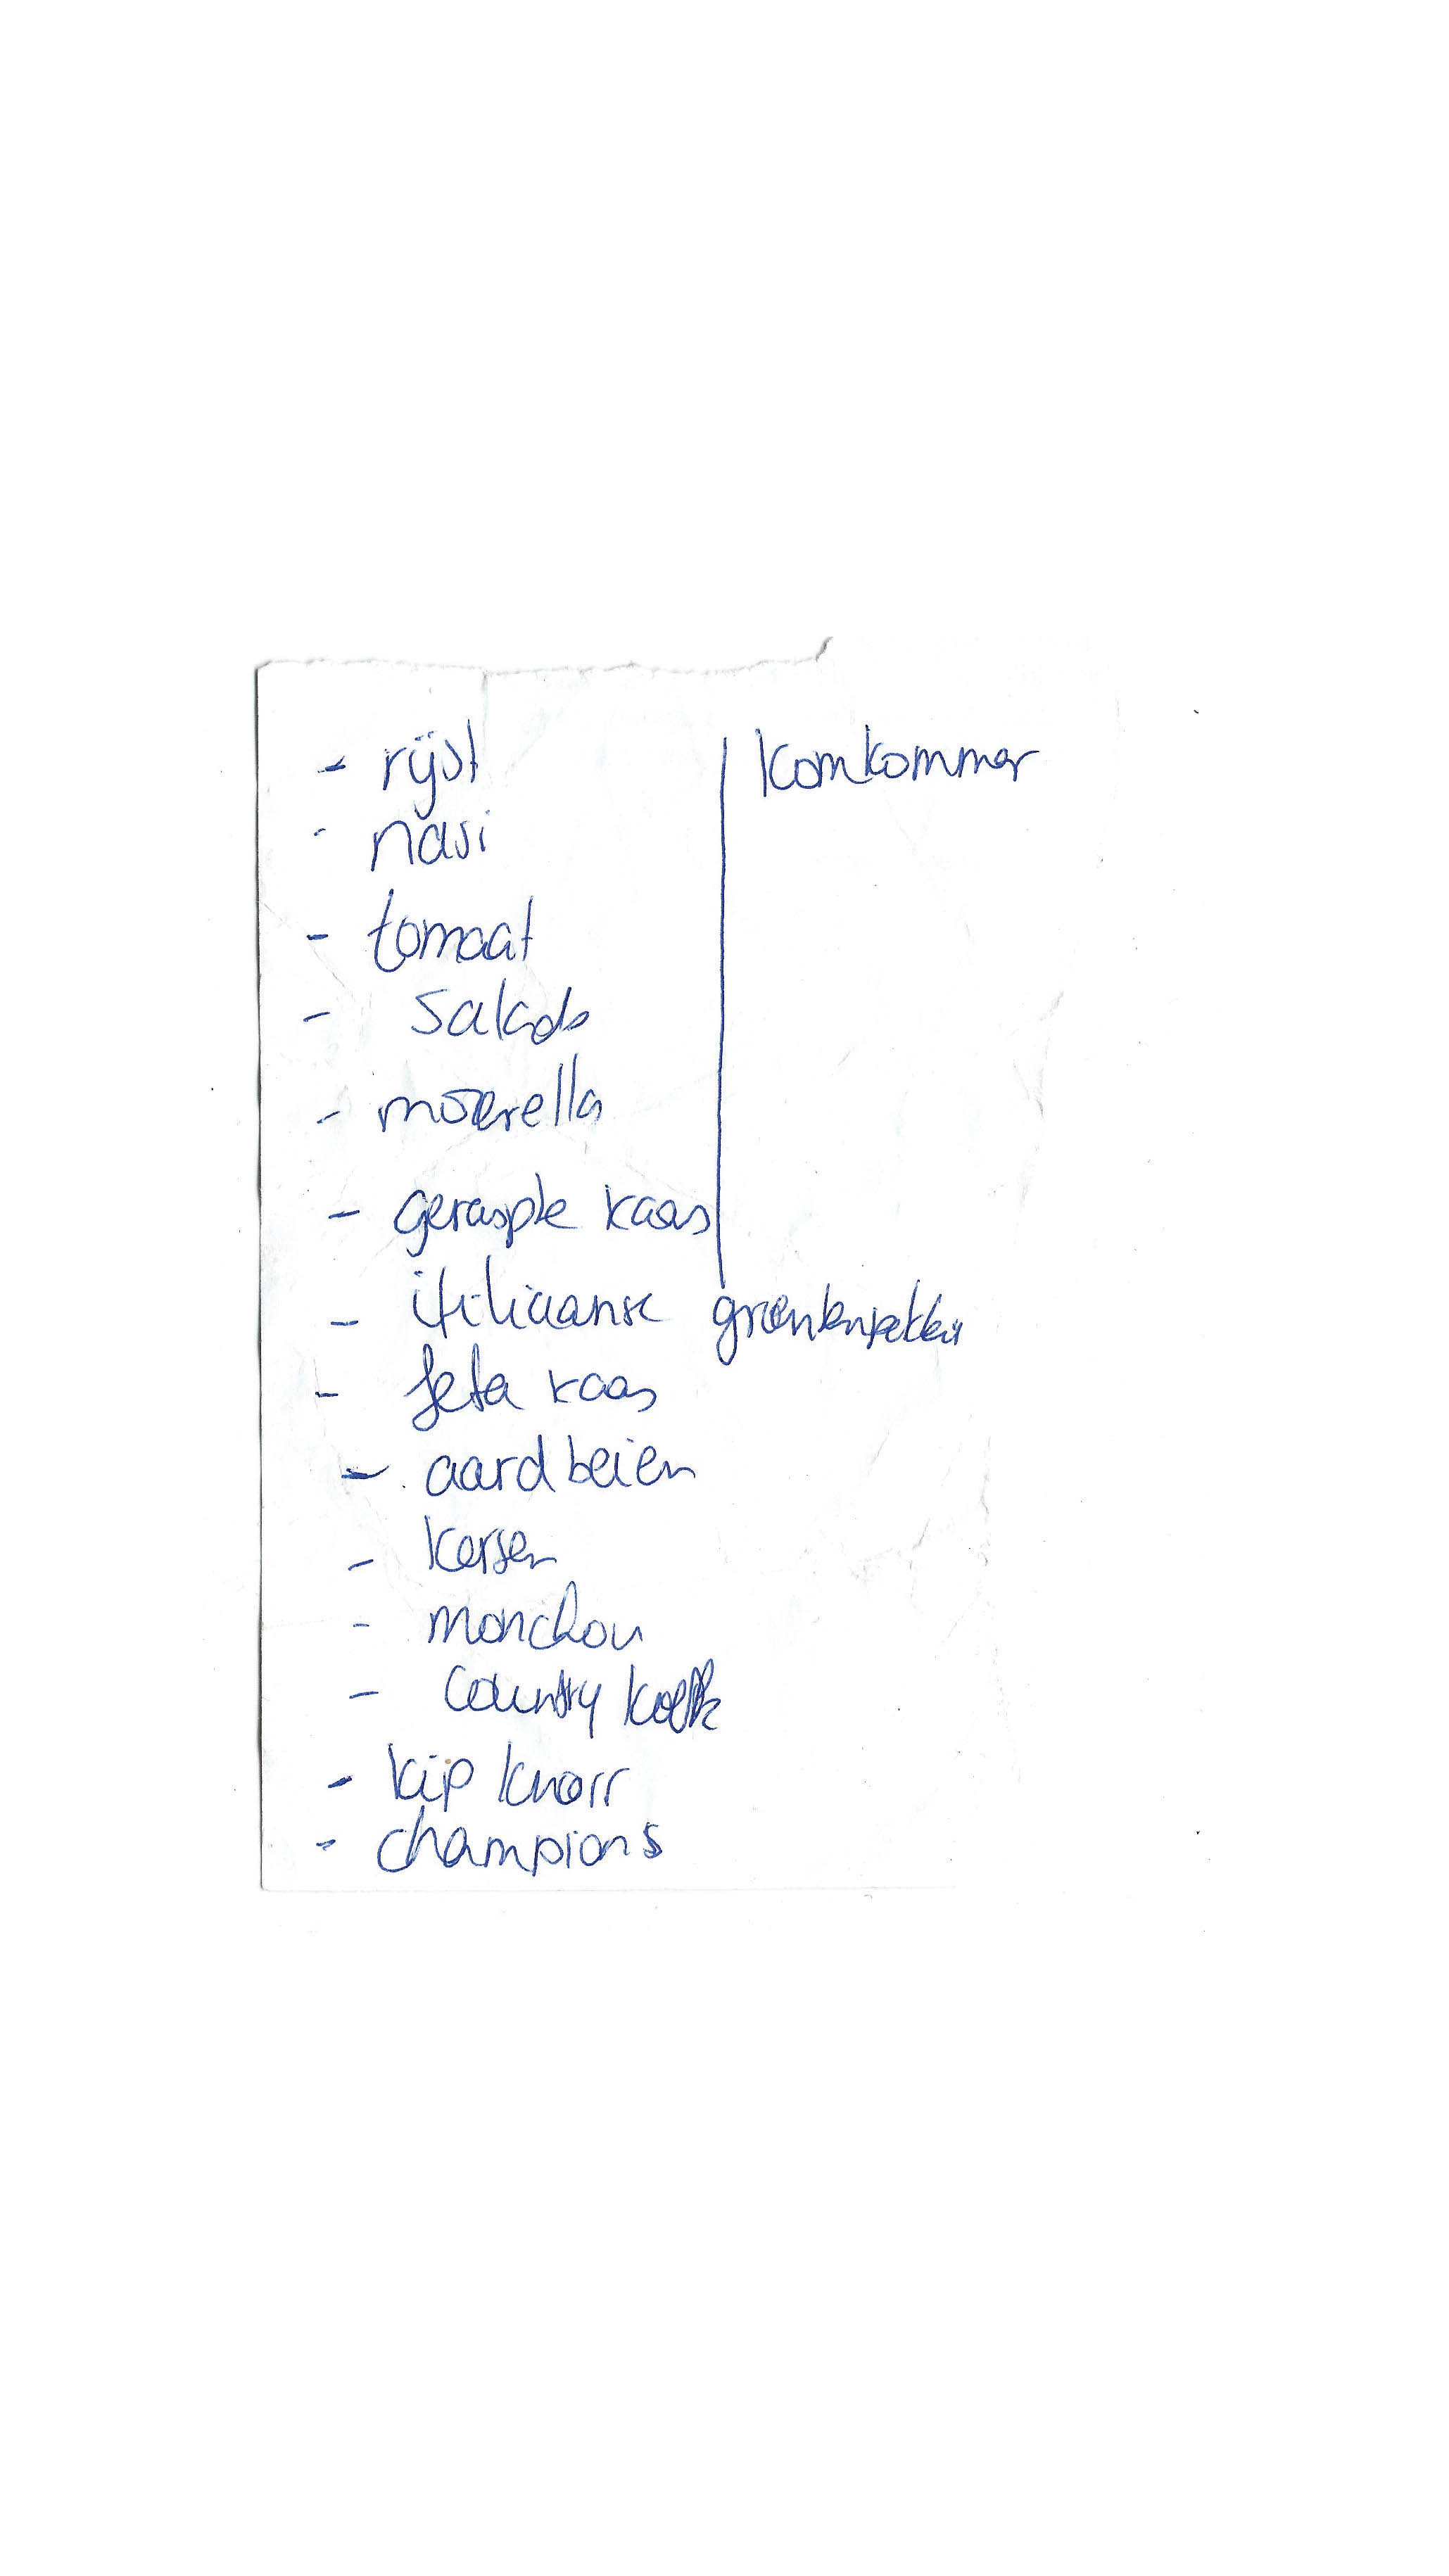 - rijst
- nasi
- tomaat
- salade
- mozerella
- geraspte kaas
- itiliaanse groentenpakket
- feta kaas
- aardbeien
- kersen
- monchou
- country
- kip knorr
- champions
komkommer